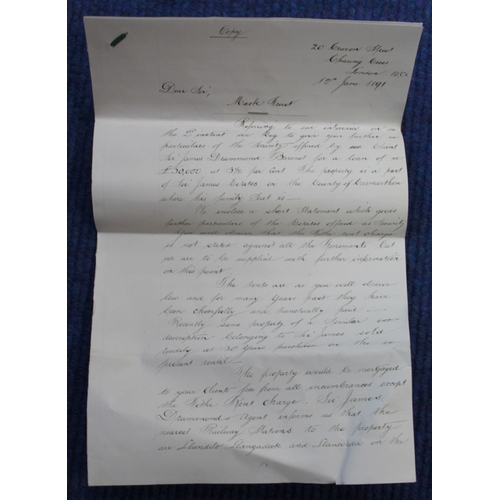 Copy
20 Craven Street
Charing Cross
London W.C.
12th June 1891
Dear Sir,
Mark Trust
Referring to our interview on
the 2nd instant we beg to give you further
particulars of the Security offered by our Client
Sir James Drummond Baronet for a loan of
£30,000 at 3½ per Cent. The property is a part
of Sir James' Estates in the County of Carmarthen
where his family Seat is —
We enclose a short Statement which gives
further particulars of the Estates offered as Security
You will observe that the Tithe rent charge
is not stated against all the Tenements but
we are to be supplied with further information
on this point
The rents are as you will observe
low and for many years past they have
been cheerfully and punctually paid —
Recently some property of a similar
description belonging to Sir James sold
readily at 30 years purchase on the
present rental
The property would be mortgaged
to your Clients free from all incumbrances except
the Tithe Rent Charge. Sir James
Drummond's Agent informs us that the
nearest Railway Stations to the property
are Llandilo Llangadock and Llandovery on the